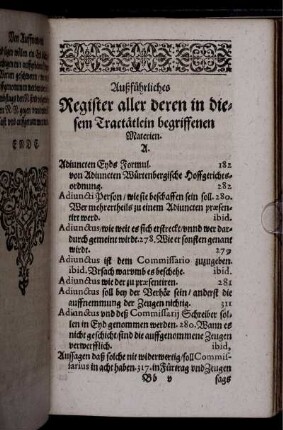 Von Auffnehm
ENDE
Außführliches
Register aller deren in die-
sem Tractätlein begriffenen
Materien.
A.
Adiuncten Eyds Formul. 182
von Adiuncten Würtenbergische Hoffgerichts-
ordnung. 282
Adiuncti Person / wie sie beschaffen sein soll. 280.
Wer mehrertheils zu einem Adiuncten præsen-
tirt werd. ibid.
Adiunctus, wie weit es sich erstreckt / vnnd wer dar-
durch gemeint wirdt. 278. Wie er sonsten genant
wirdt. 279
Adiunctus ist dem Commissario zuzugeben.
ibid. Vrsach warumb es beschehe. ibid.
Adiunctus wie der zu præsentiren. 281
Adiunctus soll bey der Verhör sein / anderst die
auffnemmung der Zeugen nichtig. 311
Adiunctus vnd deß Commissarij Schreiber sol-
len in Eyd genommen werden. 280. Wann es
nicht geschicht / sind die auffgenommene Zeugen
verwerfflich. ibid.
Aussagen daß solche nit widerwertig / soll Commis-
sarius in acht haben. 317. in Fürtrag vnd Zeugen
Bb v sags